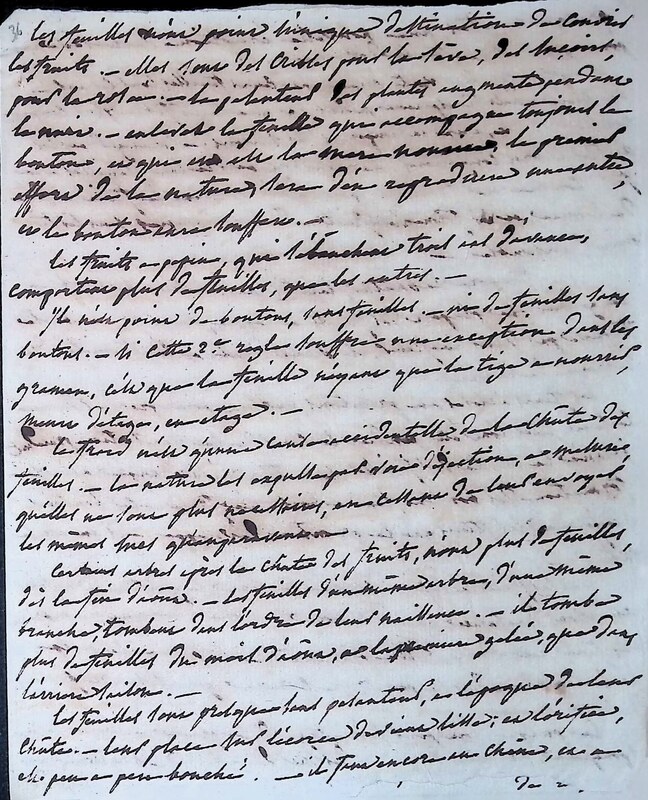 36
les feuilles n'ont point l'unique destination de couvrir
les fruits. — elles sont des cribles pour la sève, des suçoirs,
pour la rosée. — la pesanteur des plantes augmente pendant
la nuit. — enlevez la feuille qui accompagne toujours le
bouton, et qui en est la mere nourrice, le premier
effort de la nature, sera d'en reproduire une autre,
et le bouton sera
les fruits a pepin, qui s'ébauchent trois ans d'avance,
comportent plus de feuilles, que les autres. —
Il n'est point de boutons, sans feuilles. — ni de feuilles sans
boutons. — si cette 2e regle souffre une exception dans les
gramen, c'est que la feuille n'ayant que la tige a nourrir,
meurt d'étage, en étage. —
le froid n'est qu'une cause accidentelle de la chute des
feuilles. — la nature les expulse par voie déjection, a mesure
qu'elles ne sont plus necessaires, en cessant de leur envoyer
les mêmes sucs
Certains arbres après la chute des fruits, n'ont plus de feuilles,
dès la fin d'août. — les feuilles d'un même arbre, d'une même
branche, tombent dans l'ordre de leur naissance. — il tombe
plus de feuilles du mois d'août, a la première gelée, que dans
l'arriere saison. —
les feuilles sont presque sans pesanteur, a l'époque de leur
chute. — leur place sur l'écorce devient lisse; et l'orifice,
est peu a peu bouché. — il faut encore au chêne, et a